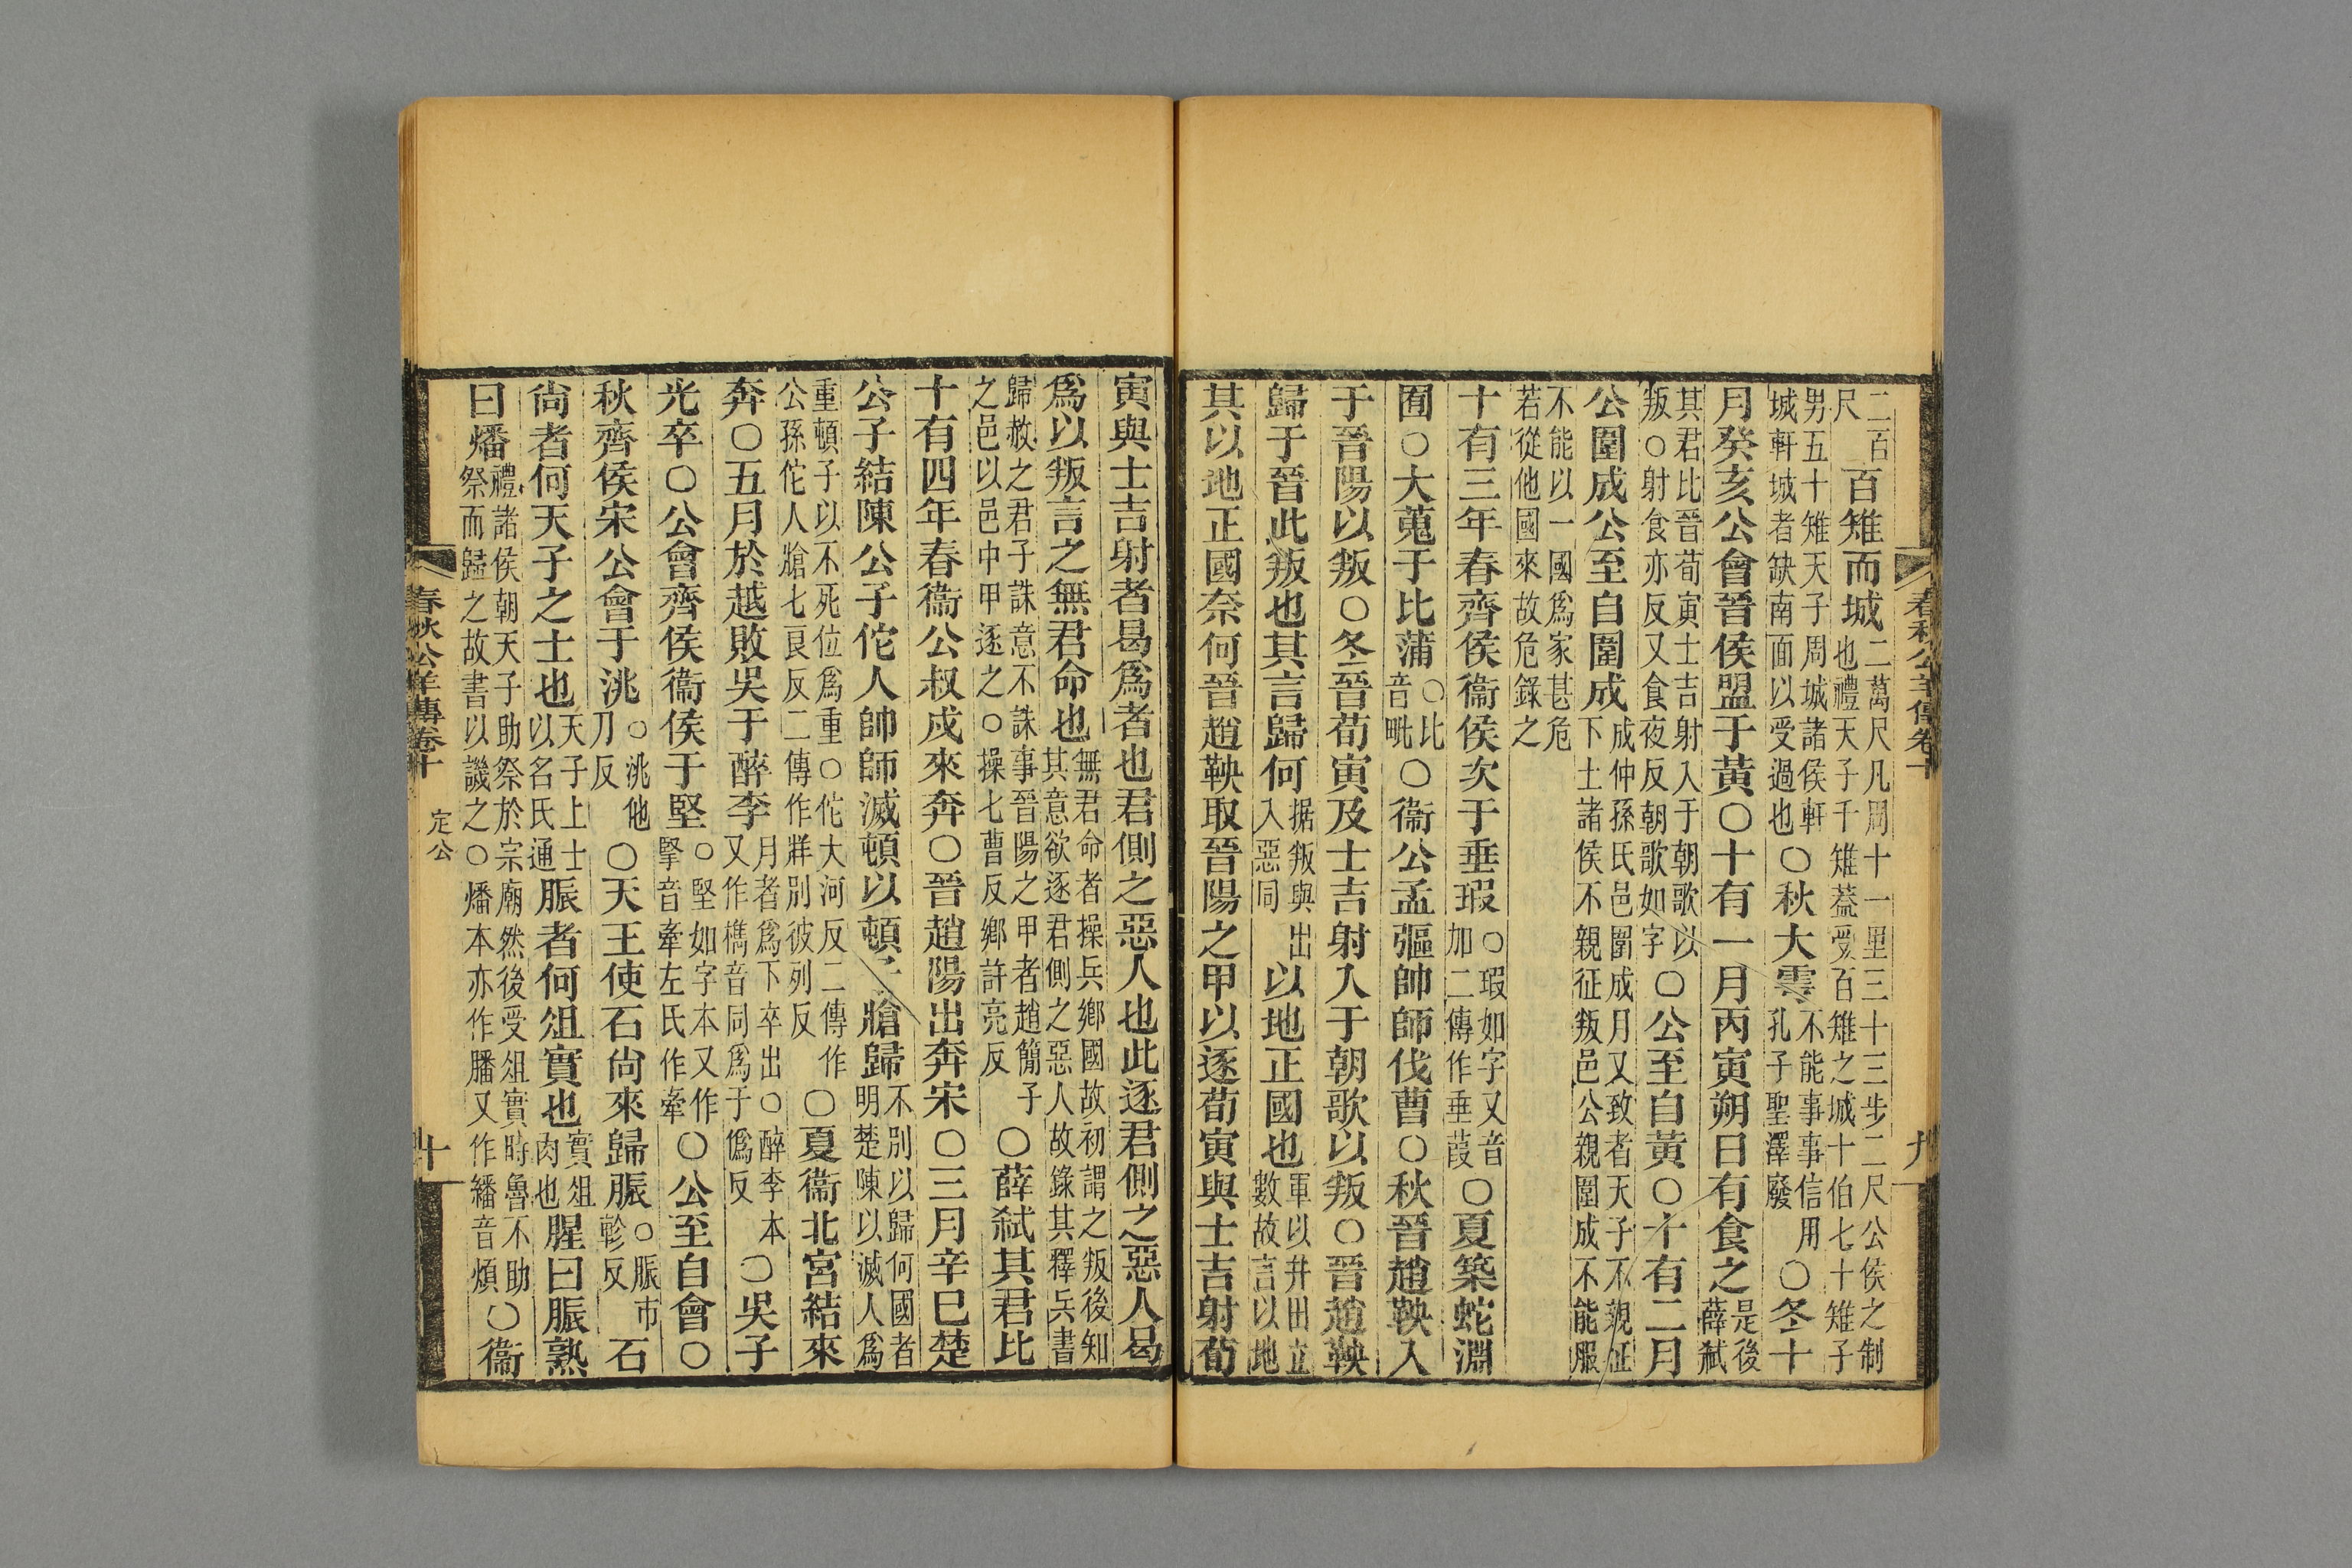 二百尺百雉而城二萬尺凡周十一里三十三步二尺公侯之制也禮天子千雉蓋受百雉之城十伯七十雉子
男五十雉天子周城諸侯軒城軒城者缺南面以受過也○秋大雩不能事事信用孔子聖澤廢○冬十
月癸亥公會晉侯盟于黃○十有一月丙寅朔日有食之是後薛弒
其君比晉荀寅士吉射入于朝歌以叛○射食亦反又食夜反朝歌如字○公至自黃○十有二月
公圍成公至自圍成成仲孫氏邑圍成月又致者天子不親征下土諸侯不親征叛邑公親圍成不能服
不能以一國爲家甚危若從他國來故危錄之
十有三年春齊侯衞侯次于垂瑕○瑕如字又音加二傳作垂葭○夏築蛇淵
囿○大蒐于比蒲○比音毗○衞公孟彄帥師伐曹○秋晉趙鞅入
于晉陽以叛○冬晉荀寅及士吉射入于朝歌以叛○晉趙鞅
歸于晉此叛也其言歸何据叛與出入惡同以地正國也軍以井田立數故言以地
其以地正國奈何晉趙鞅取晉陽之甲以逐荀寅與士吉射荀
春秋公羊傳卷十
九
寅與士吉射者曷爲者也君側之惡人也此逐君側之惡人曷
爲以叛言之無君命也無君命者操兵鄉國故初謂之叛後知其意欲逐君側之惡人故錄其釋兵書
歸赦之君子誅意不誅事晉陽之甲者趙簡子之邑以邑中甲逐之○操七曹反鄉許亮反○薛弒其君比
十有四年春衞公叔戍來奔○晉趙陽出奔宋○三月辛巳楚
公子結陳公子佗人帥師滅頓以頓子牄歸不別以歸何國者明楚陳以滅人爲
重頓子以不死位爲重○佗大河反二傳作公孫佗人牄七良反二傳作牂別彼列反○夏衞北宮結來
奔○五月於越敗吳于醉李月者爲下卒出○醉李本又作檇音同爲于僞反○吳子
光卒○公會齊侯衞侯于堅○堅如字本又作掔音牽左氏作牽○公至自會○
秋齊侯宋公會于洮○洮他刀反○天王使石尚來歸脤○脤市軫反石
尚者何天子之士也天子上士以名氏通脤者何俎實也實俎肉也腥曰脤熟
曰燔禮諸侯朝天子助祭於宗廟然後受俎實時魯不助祭而歸之故書以譏之○燔本亦作膰又作繙音煩○衞
春秋公羊傳卷十
定公
十